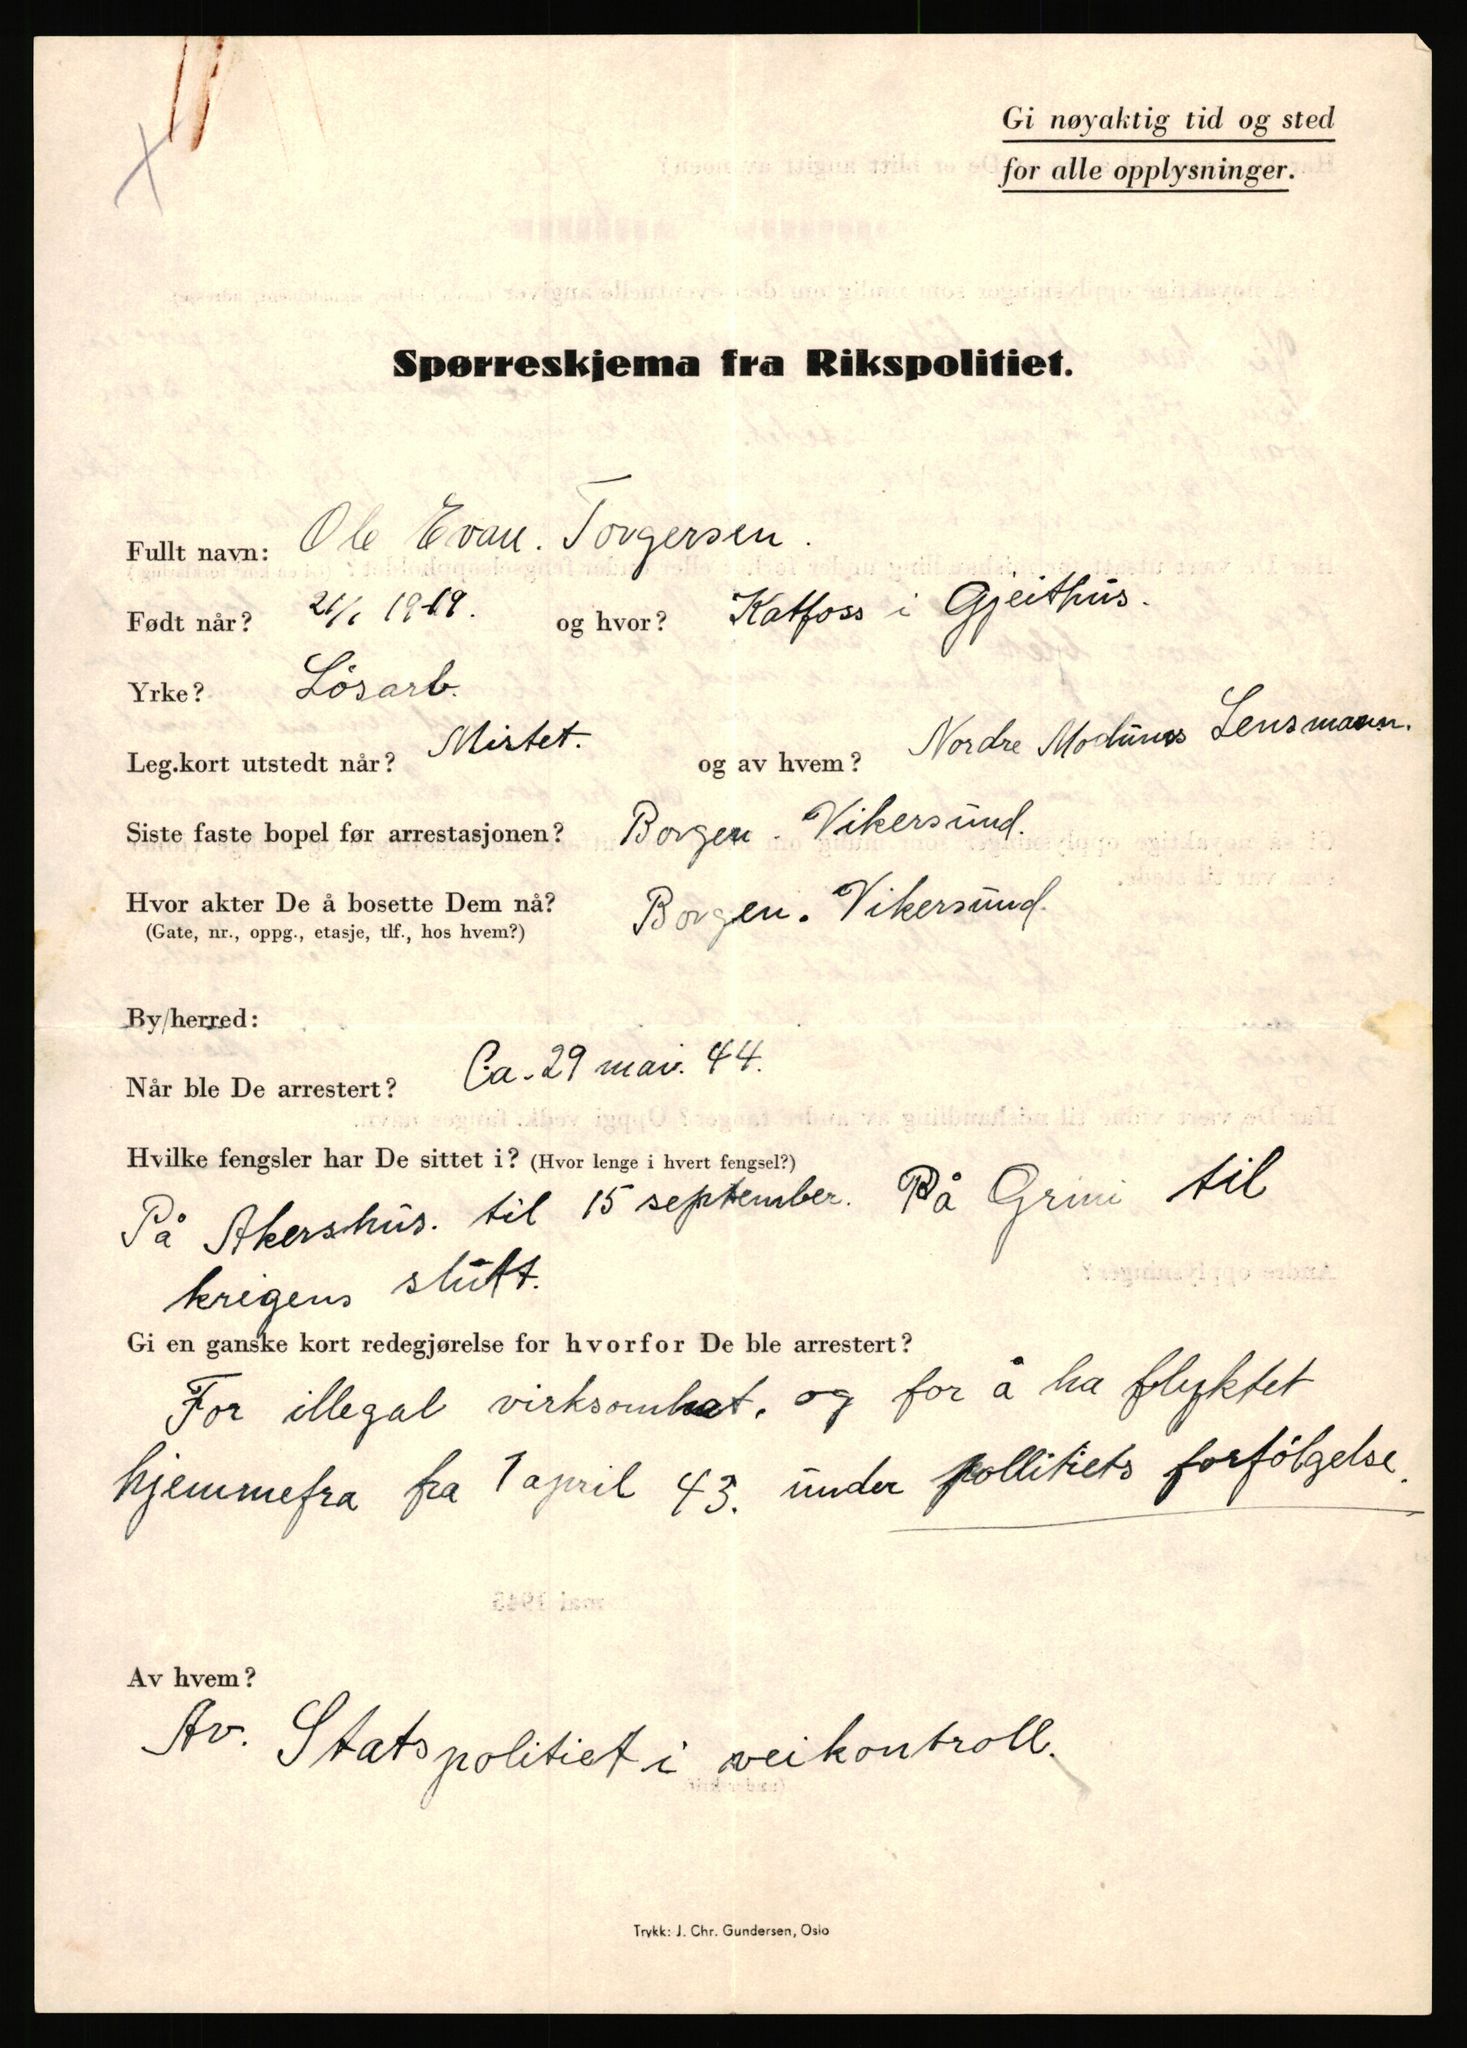 Gi nøyaktig tid og sted
for alle opplysninger.
Spørreskjema fra Rikspolitiet.
Fullt navn: Ole Evan. Torgersen.
Født når? 21/1 1919. og hvor? Katfoss i Gjeithus.
Yrke? Løsarb.
Leg.kort utstedt når? Mistet. og av hvem? Nordre Modums Lensmann.
Siste faste bopel før arrestasjonen? Borgen. Vikersund.
Hvor akter De å bosette Dem nå? Borgen. Vikersund.
(Gate, nr., oppg., etasje, tlf., hos hvem?)
By/herred:
Når ble De arrestert? Ca. 29 mai. 44.
Hvilke fengsler har De sittet i? (Hvor lenge i hvert fengsel?)
På Akershus. til 15 september. På Grini til
krigens slutt.
Gi en ganske kort redegjørelse for hvorfor De ble arrestert?
For illegal virksomhet. og for å ha flyktet
hjemmefra fra 1 april 43. under pollitiets forfölgelse.
Av hvem?
Av. Statspolitiet i veikontroll.
Trykk: J. Chr. Gundersen, Oslo